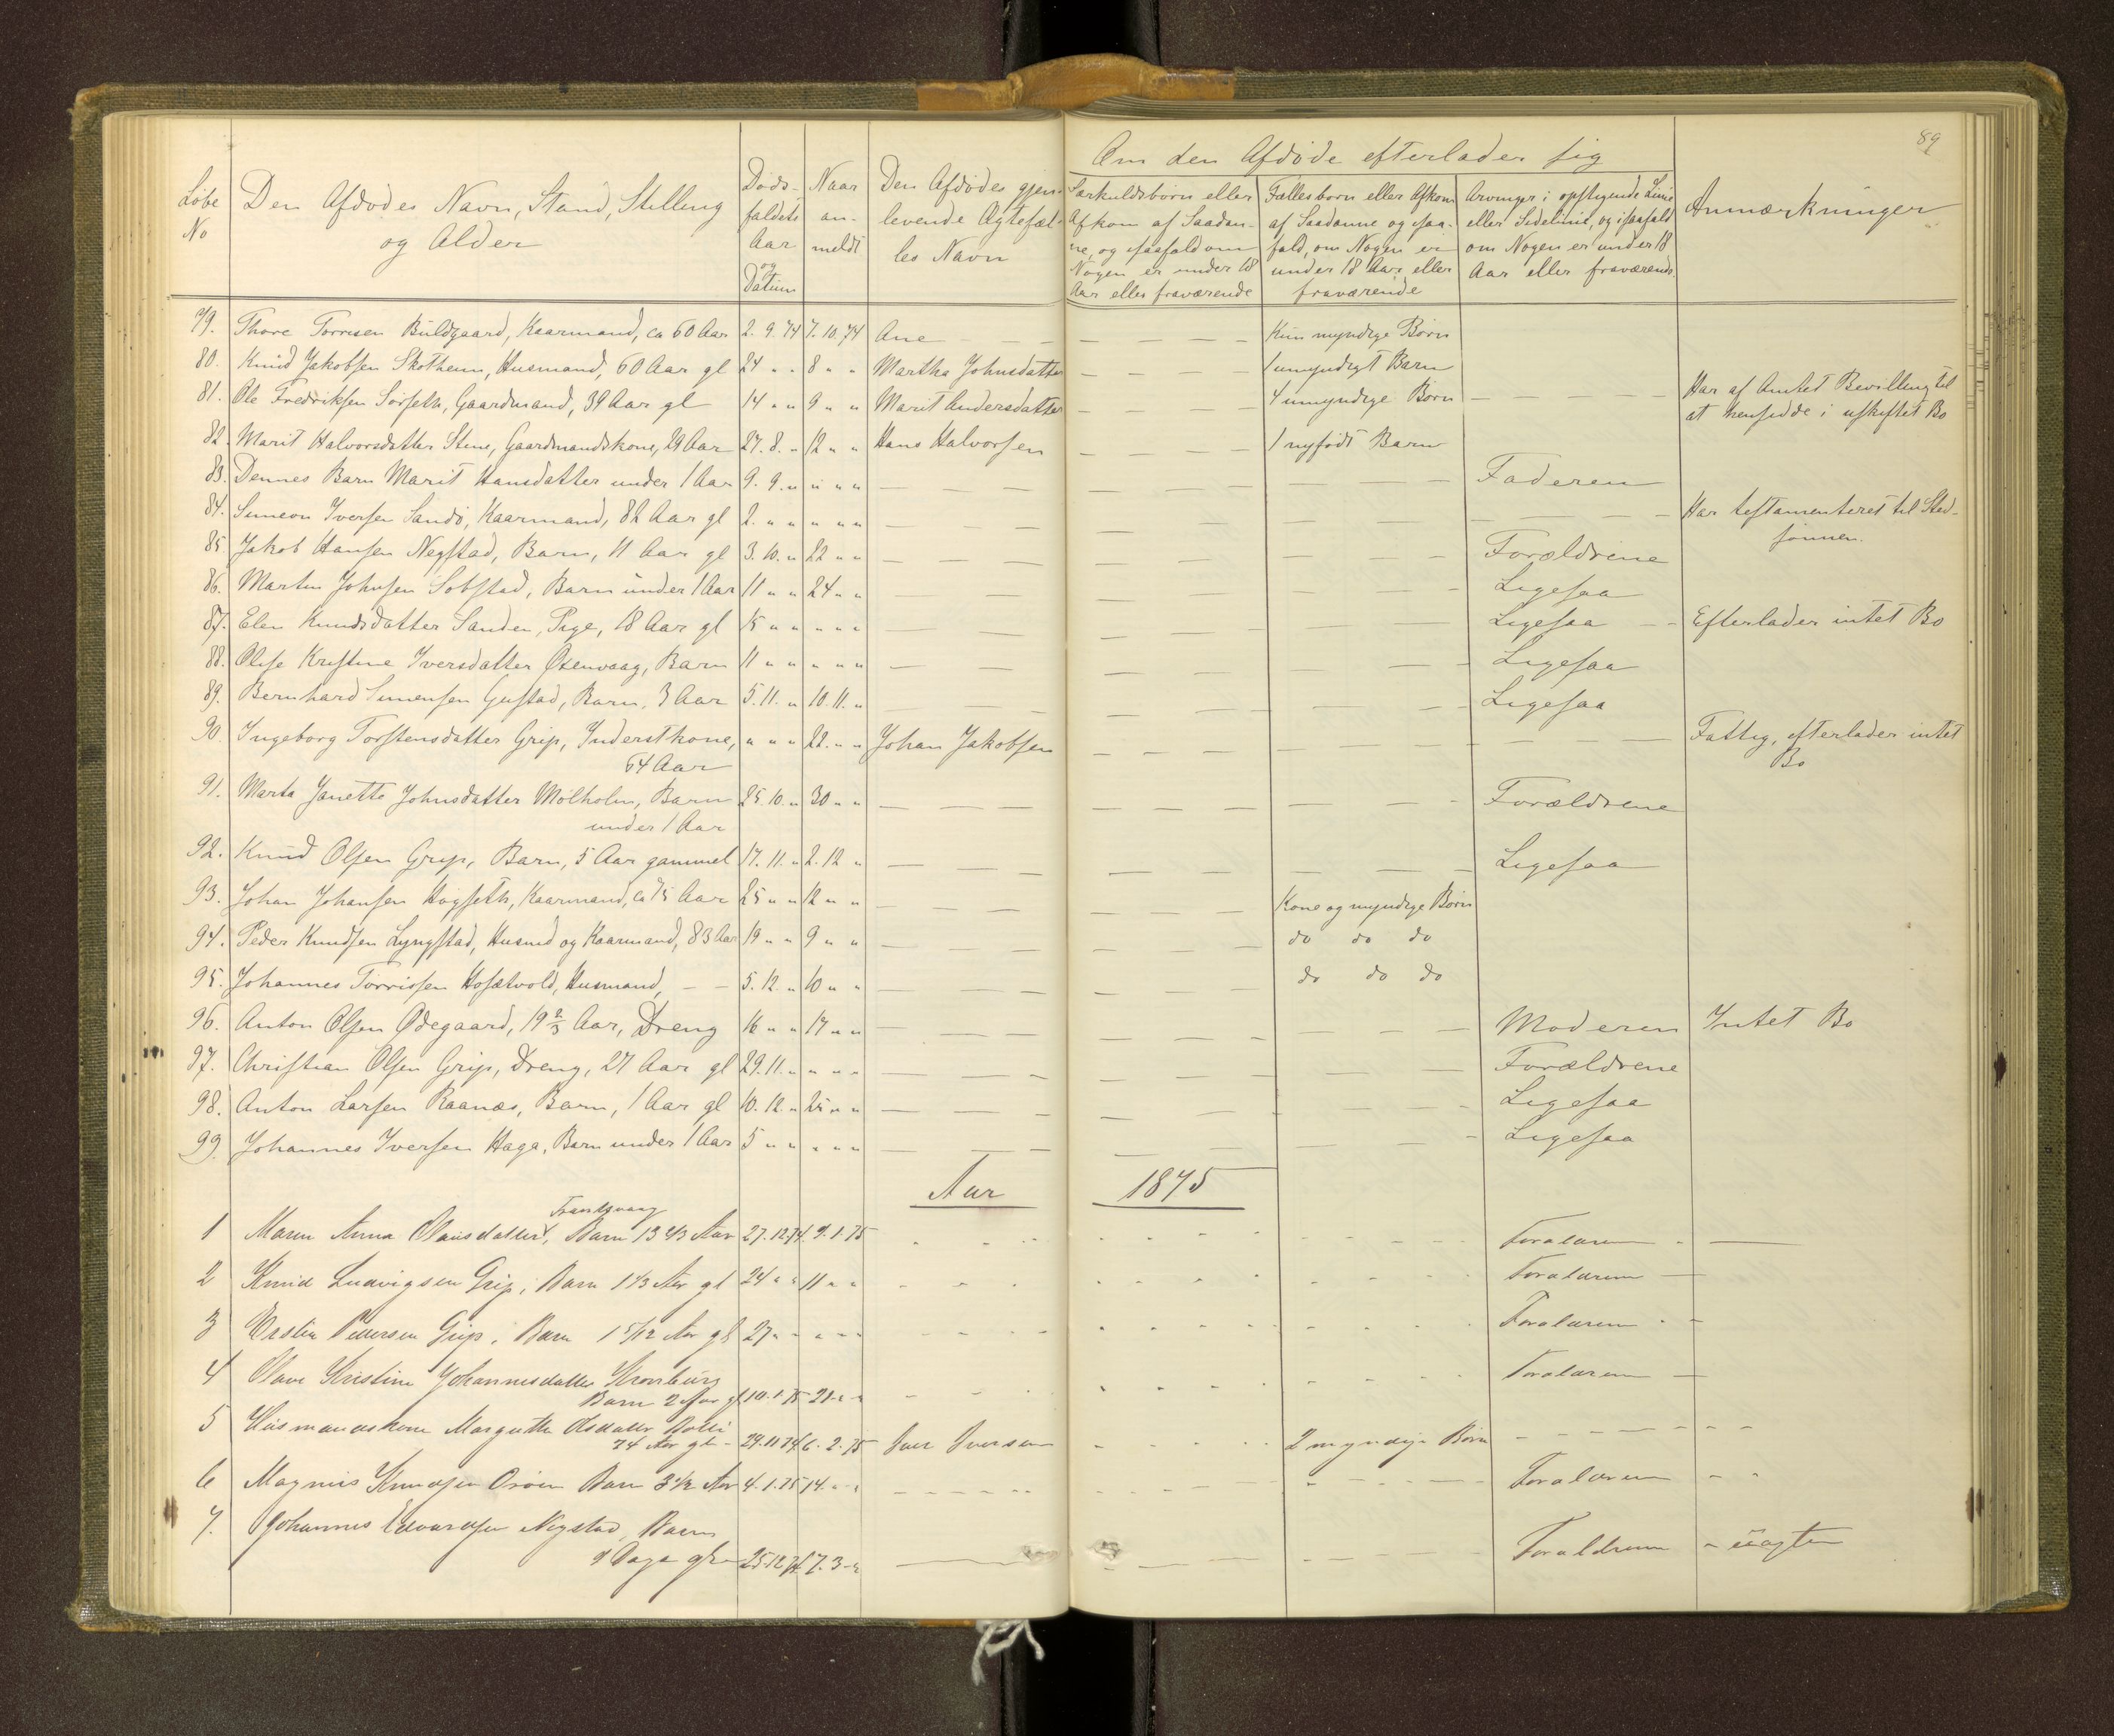 89
Om den Afdøde efterlader sig
Løbe No | Den Afdødes Navn, Stand, Stilling og Alder | Døds-faldets Aar og Datum | Naar an-meldt | Den Afdødes gjen-levende Ægtefæl-les Navn | Særkuldsbørn eller Afkom af Saadan-ne, og isaafald om Nogen er under 18 Aar eller fraværende | Fællesbørn eller Afkom af Saadanne og isaa-fald, om Nogen er under 18 Aar eller fraværende | Arvinger i opstigende Linie eller Sidelinie, og isaafald om Nogen er under 18 Aar eller fraværende | Anmærkninger
79. Thore Torresen Buldgaard, Kaarmand, ca 60 Aar 2. 9. 74 7. 10. 74 Ane — Kun myndige Børn
80. Knud Jakobsen Skothenn, Husmand, 60 Aar gl 24 " " 8 " " Martha Johnsdatter — 1 umyndigt Barn
81. Ole Fredriksen Sørseth, Gaardmand, 39 Aar gl 14 " " 9 " " Marit Andersdatter — 4 umyndige Børn — Har af Amtet Bevilling til
at hensidde i uskiftet Bo
82. Marit Halvorsdatter Stene, Gaardmandskone, 29 Aar 27. 8. " 12 " " Hans Halvorsen — 1 nyfødt Barn
83. Dennes Barn Marit Hansdatter under 1 Aar 9. 9. " " " " — Faderen
84. Simeon Iversen Sandø, Kaarmand, 82 Aar gl 2. " " " " " — Har testamenteret til Sted-
sønnen.
85 Jakob Hansen Negstad, Barn, 11 Aar gl 3. 10. " 22 " " — Forældrene
86. Martin Johnsen Solstad, Barn under 1 Aar 11 " " 24 " " — Ligesaa
87. Elen Knudsdatter Sanden, Pige, 18 Aar gl 15 " " " " " — Ligesaa — Efterlader intet Bo
88. Olise Kristine Iversdatter Oxenvaag, Barn 11 " " " " " — Ligesaa
89. Bernhard Simensen Gustad, Barn, 3 Aar 5. 11. " 10. 11. " — Ligesaa
90. Ingeborg Torstensdatter Grip, Inderstkone, " " " 22. " " Johan Jakobsen — Fattig, efterlader intet
64 Aar Bo
91. Marta Janette Johnsdatter Mølholm, Barn 25. 10. " 30 " " — Forældrene
under 1 Aar
92. Knud Olsen Grip, Barn, 5 Aar gammel 17. 11. " 2. 12 " — Ligesaa
93. Johan Johansen Hogseth, Kaarmand, ca 75 Aar 25 " " 12 " " — Kone og myndige Børn
94. Peder Knudsen Lyngstad, Husmd og Kaarmand, 83 Aar 19 " " 9 " " — do do do
95. Johannes Torrissen Hosetvold, Husmand, — 5. 12. " 10 " " — do do do
96. Anton Olsen Ødegaard, 19 2/3 Aar, Dreng 16 " " 17 " " — Moderen Intet Bo
97. Christian Olsen Grip, Dreng, 27 Aar gl 29. 11. " " " " — Forældrene
98. Anton Larsen Raanæs, Barn, 1 Aar gl 10. 12. " 25 " " — Ligesaa
99. Johannes Iversen Haga, Barn under 1 Aar 5 " " " " " — Ligesaa
Aar 1875
1 Maren Anna Clausdatter, Barn 13 2/3 Aar 27. 12. 74 9. 1. 75 Forældrene —
2 Knud Ludvigsen Grip, Barn 1 1/3 Aar gl 24 " " 11 " " Forældrene —
3 Pedersen Grip, Barn 1 5/12 Aar gl 27 " " " " " Forældrene
4 Olave Kristine Johannesdatter Kronborg
Barn 2 Aar gl 10. 1. 75 21 " " Forældrene —
5 Husmandskone Margrethe Olsdatter
74 Aar gl 29. 11. 74 6. 2. 75 Iver Iversen 2 myndige Børn
6 Magnus Knudsen Orøen Barn 3 1/2 Aar 4. 1. 75 14. " " Forældrene
7. Johannes Edvardsen Negstad, Barn
9 Dage gl 25 12 74 17. 3 " — Forældrene — uægte